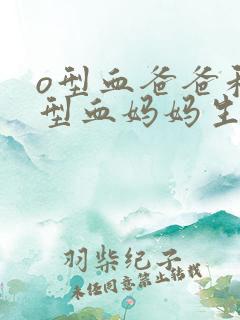 o型血爸爸和
型血妈妈生
羽柴纪子
未经同意禁止转载